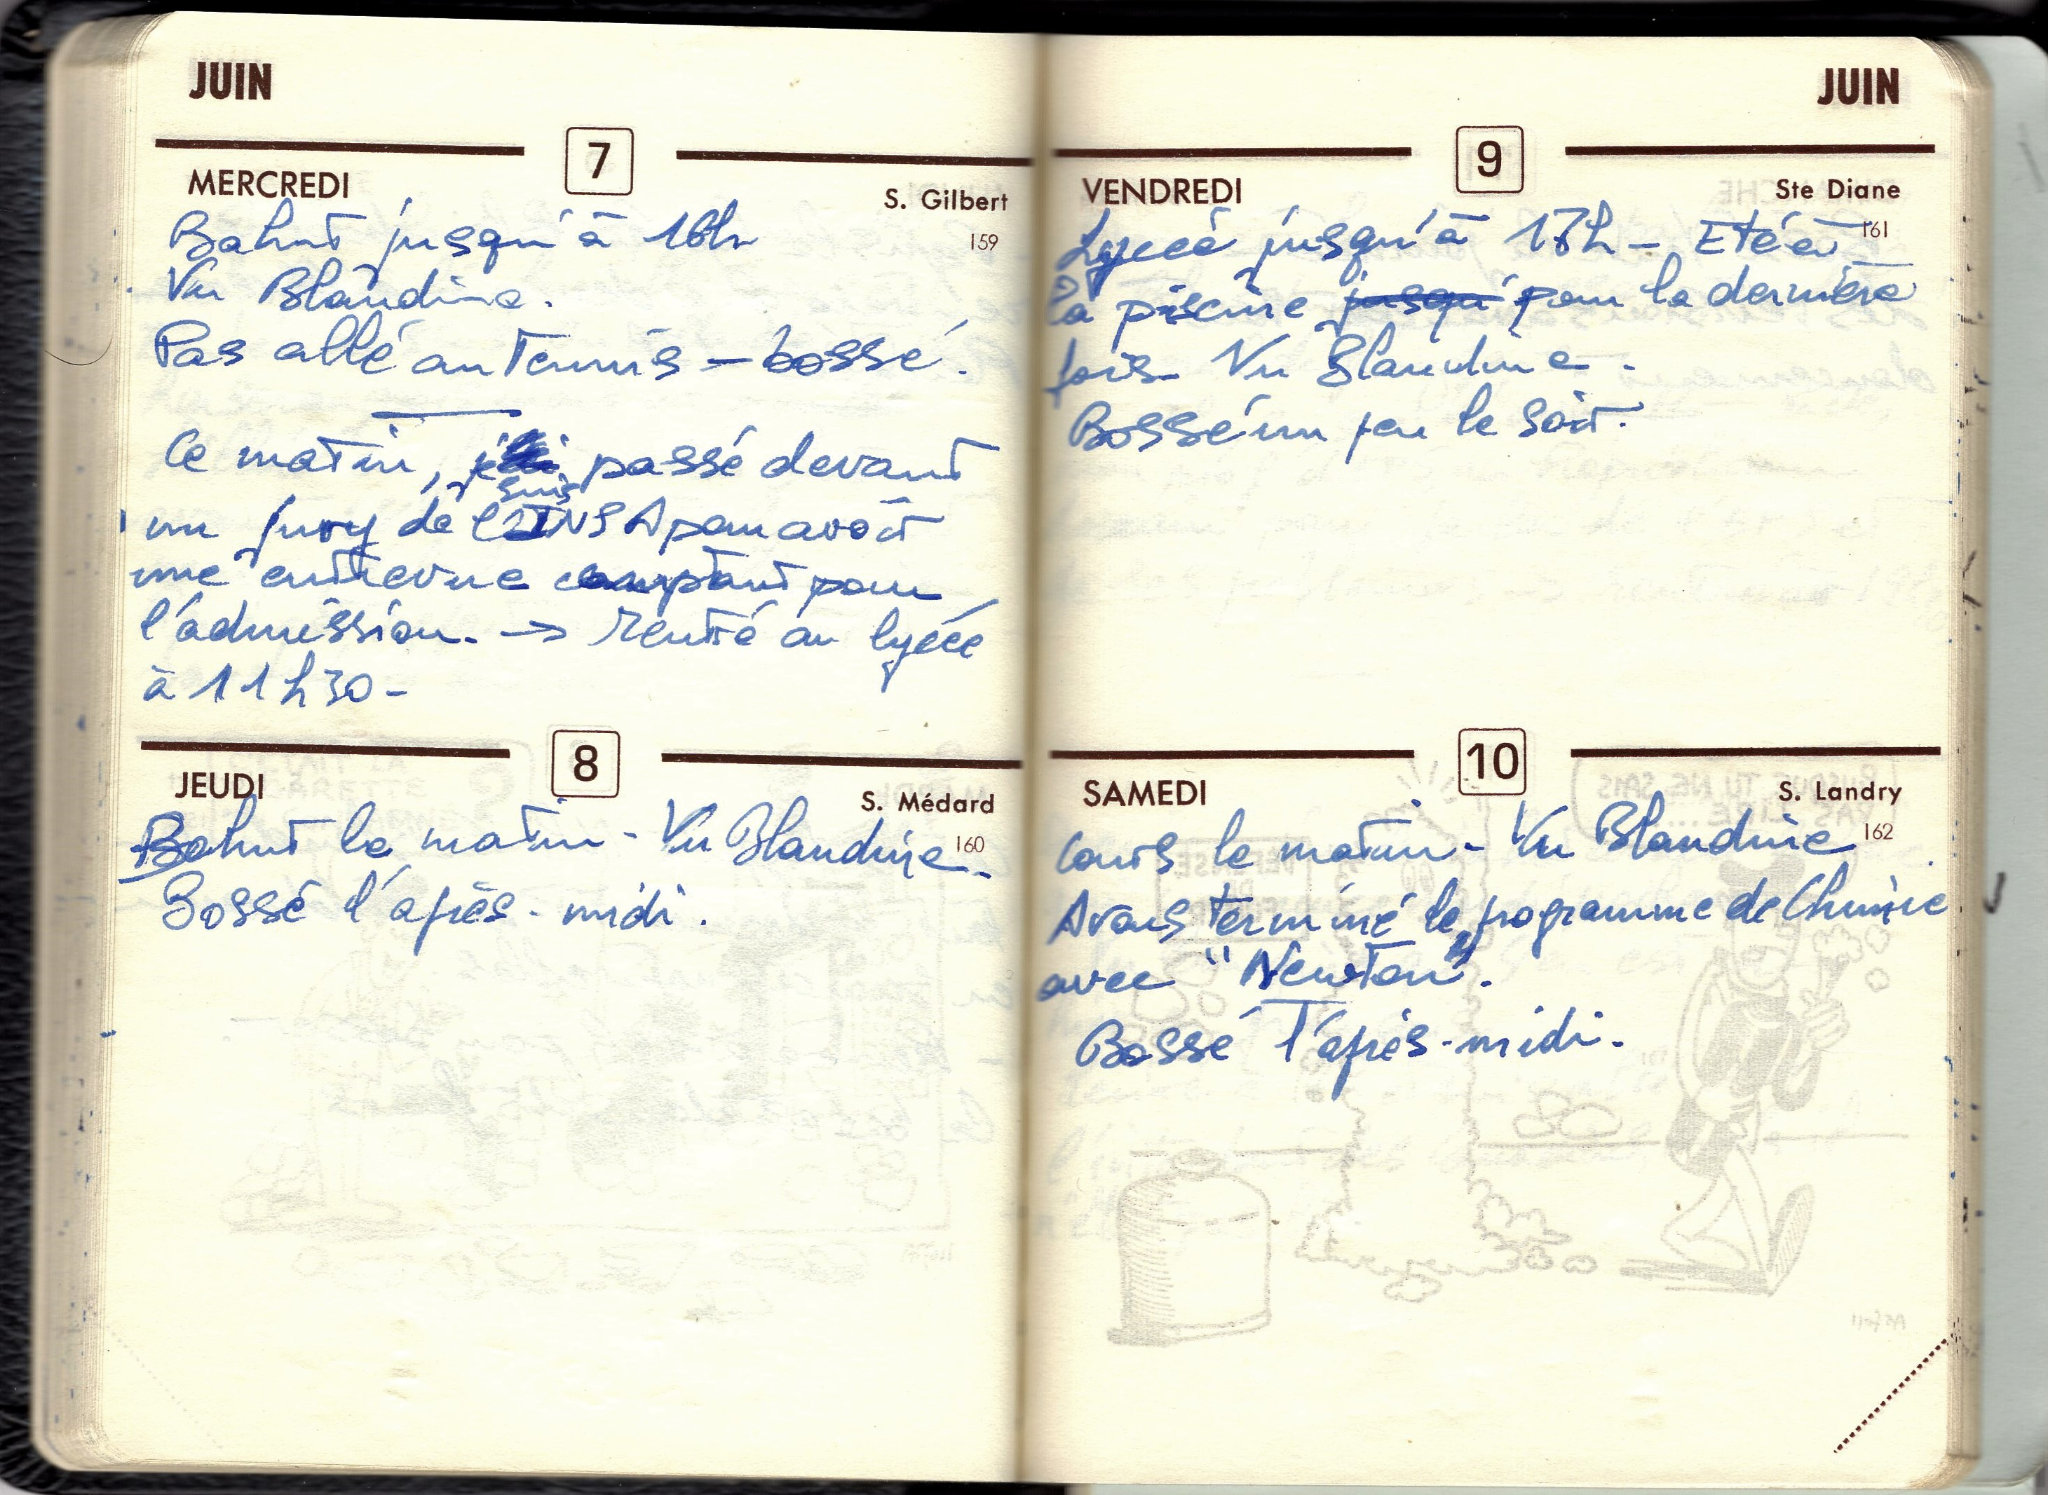 JUIN
MERCREDI
7
S. Gilbert
159
Bahut jusqu'à 16h
Vu Blandine.
Pas allé au Tennis - bossé.
Ce matin, je suis passé devant
un jury de l'INSA pour avoir
une entrevue comptant pour
l'admission. → rentré au lycée
à 11h30 -
JEUDI
8
S. Médard
160
Bahut le matin - Vu Blandine.
Bossé l'après-midi.
JUIN
VENDREDI
9
Ste Diane
161
Lycée jusqu'à 17h - Eté à
la piscine jusqu' pour la dernière
fois. Vu Blandine.
Bossé un peu le soir.
SAMEDI
10
S. Landry
162
Cours le matin - Vu Blandine
Avons terminé le programme de Chimie
avec "Newton".
Bossé l'après-midi.